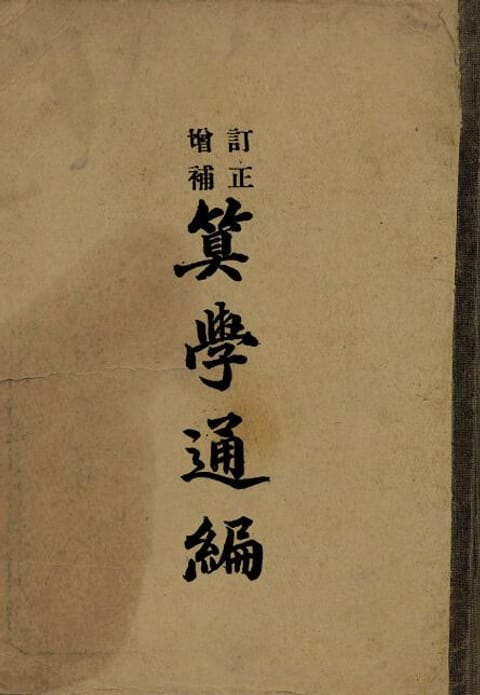 訂正
增補
算學通編